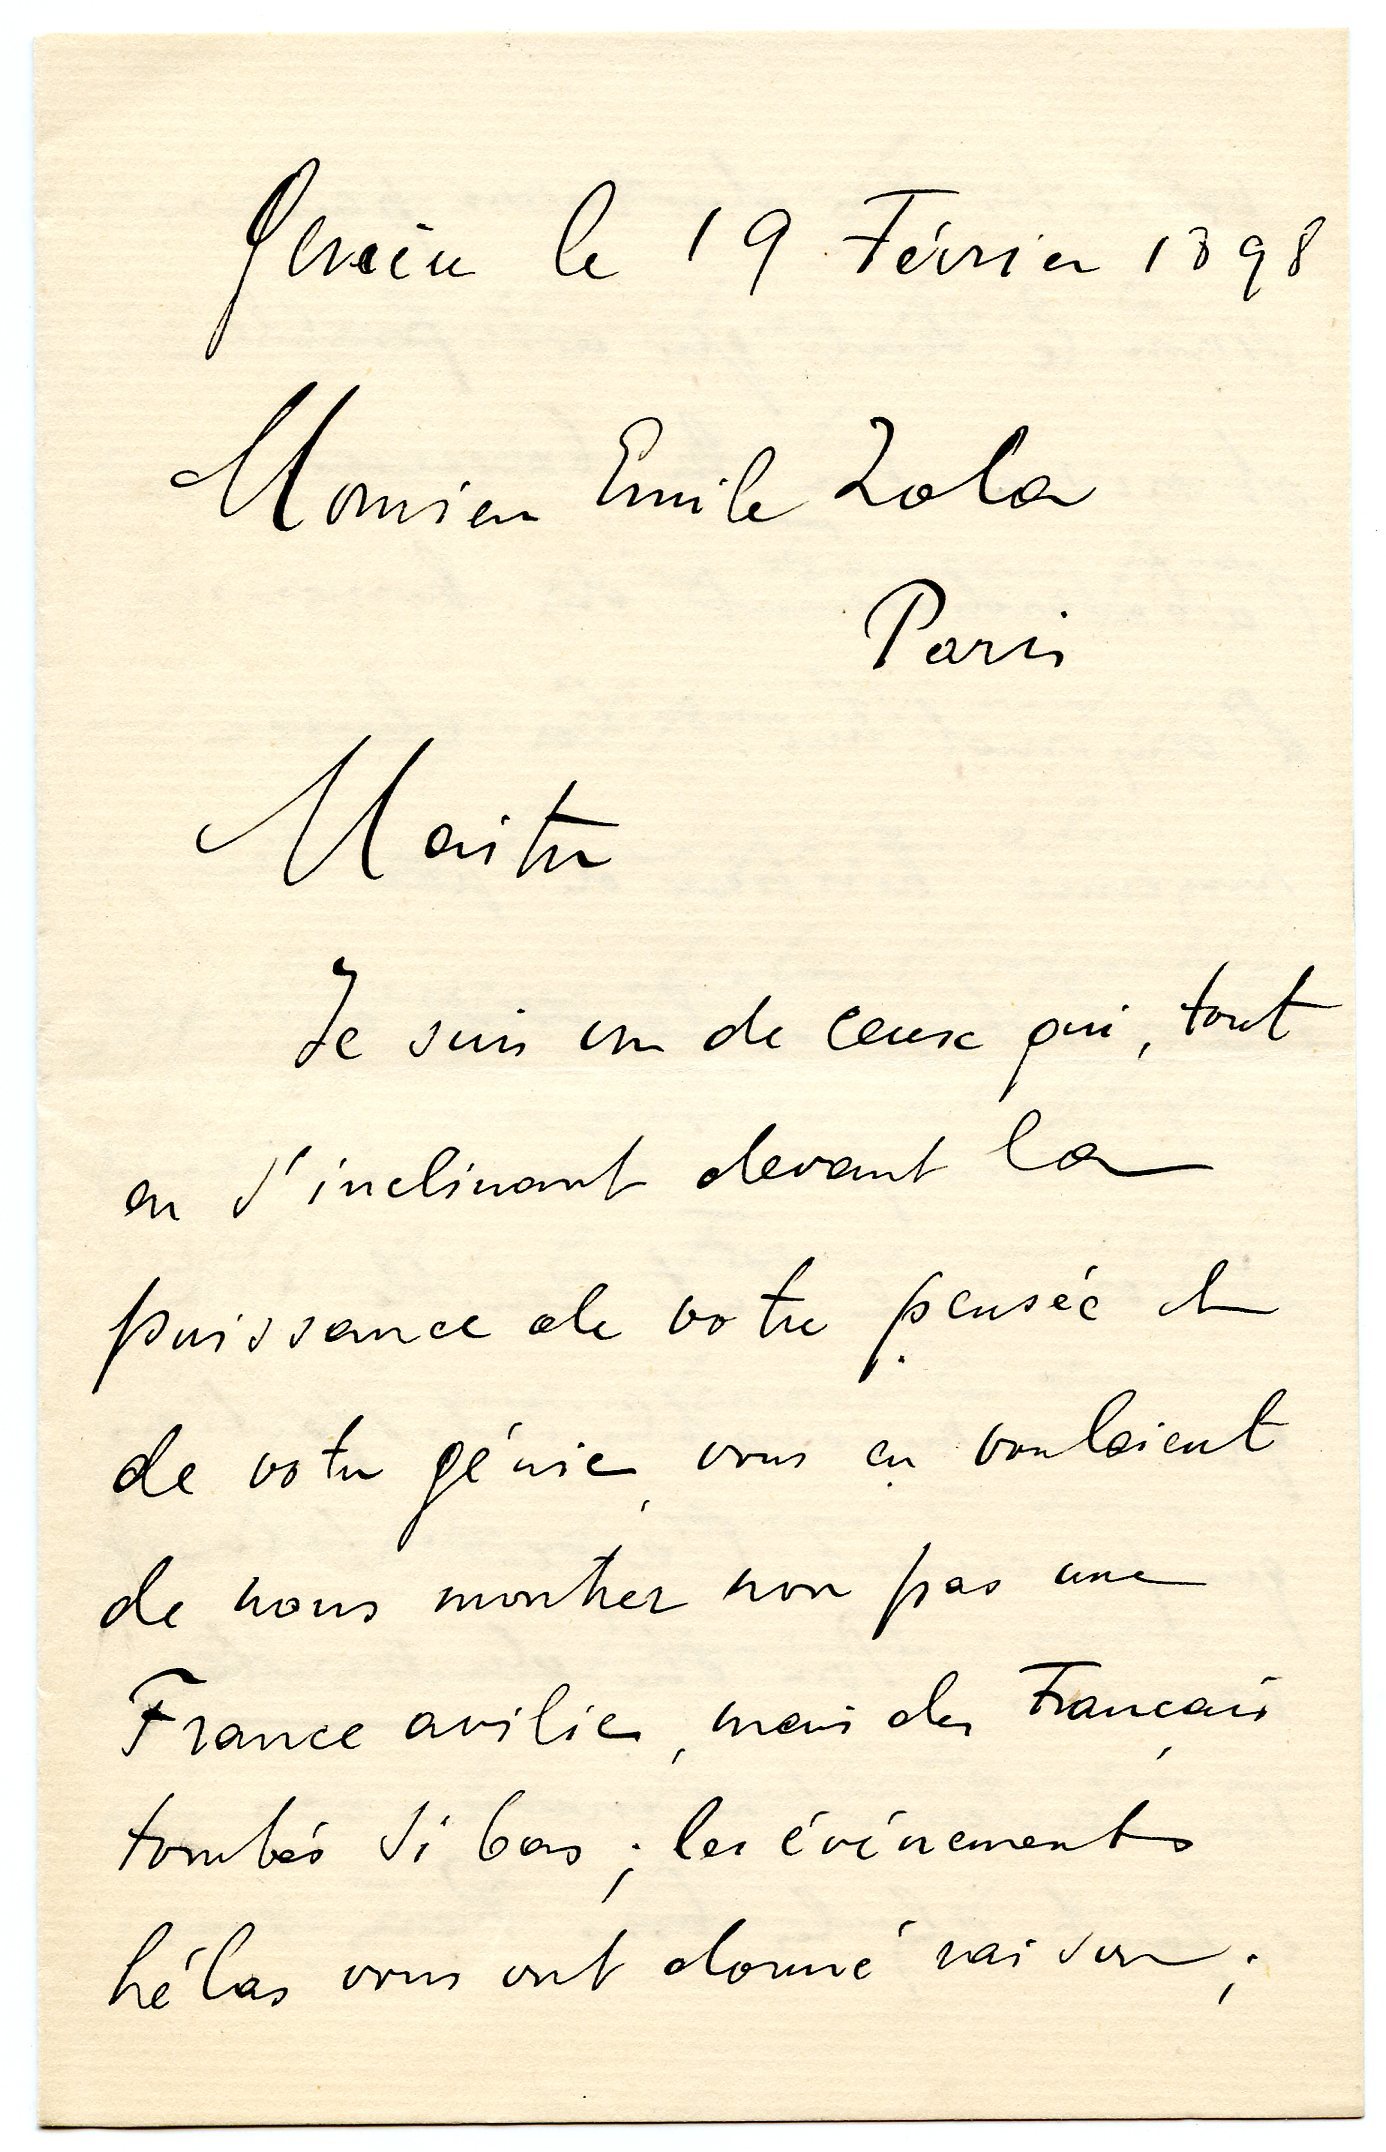 Genève le 19 Février 1898
Monsieur Emile Zola
Paris
Maitre
Je suis un de ceux qui, tout
en s'inclinant devant la
puissance de votre pensée et
de votre génie, vous en voulaient
de nous montrer non pas une
France avilie, mais des Français
tombés si bas ; les événements
hélas vous ont donné raison ;